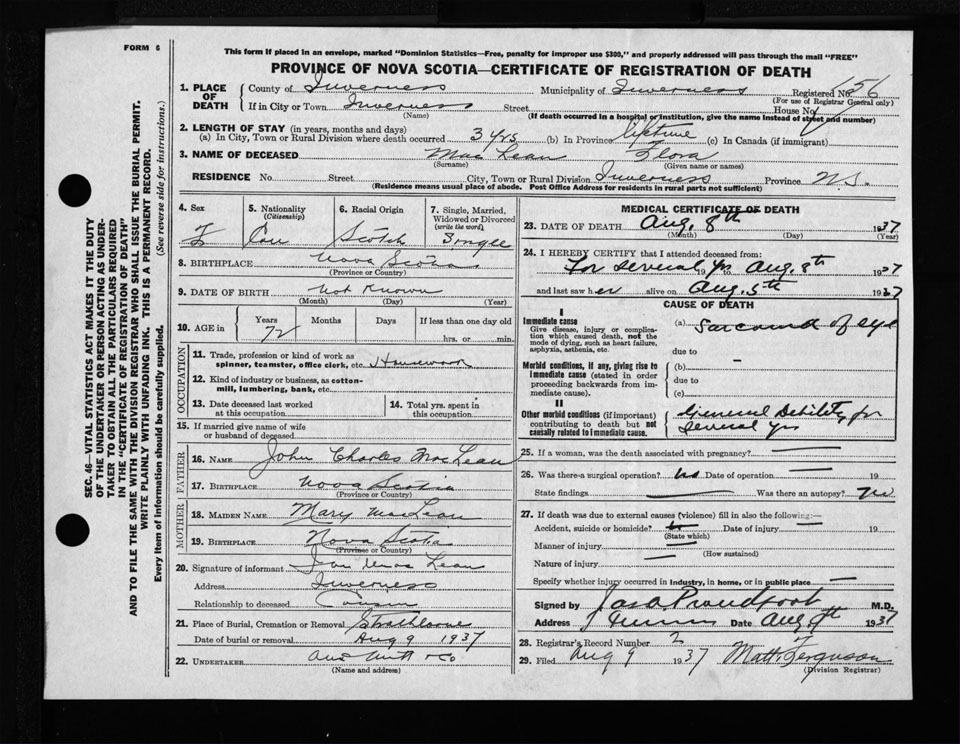 FORM 6
This form if placed in an envelope, marked "Dominion Statistics—Free, penalty for improper use $300," and properly addressed will pass through the mail "FREE"
PROVINCE OF NOVA SCOTIA—CERTIFICATE OF REGISTRATION OF DEATH
SEC. 46—VITAL STATISTICS ACT MAKES IT THE DUTY
OF THE UNDERTAKER OR PERSON ACTING AS UNDER-
TAKER TO OBTAIN ALL THE PARTICULARS REQUIRED
IN THE "CERTIFICATE OF REGISTRATION OF DEATH"
AND TO FILE THE SAME WITH THE DIVISION REGISTRAR WHO SHALL ISSUE THE BURIAL PERMIT.
WRITE PLAINLY WITH UNFADING INK. THIS IS A PERMANENT RECORD.
Every item of information should be carefully supplied. (See reverse side for instructions.)
1. PLACE OF DEATH
County of Inverness Municipality of Inverness Registered No. 656
(For use of Registrar General only)
If in City or Town Inverness Street House No.
(Name) (If death occurred in a hospital or institution, give the name instead of street and number)
2. LENGTH OF STAY (in years, months and days)
(a) In City, Town or Rural Division where death occurred 3 yrs (b) In Province lifetime (c) In Canada (if immigrant)
3. NAME OF DECEASED Mac Lean Flora
(Surname) (Given name or names)
RESIDENCE No. Street City, Town or Rural Division Inverness Province N.S.
(Residence means usual place of abode. Post Office Address for residents in rural parts not sufficient)
4. Sex F
5. Nationality (Citizenship) Can
6. Racial Origin Scotch
7. Single, Married, Widowed or Divorced (write the word) Single
8. BIRTHPLACE Nova Scotia
(Province or Country)
9. DATE OF BIRTH Not Known
(Month) (Day) (Year)
10. AGE in Years Months Days If less than one day old
72 hrs. or min.
OCCUPATION
11. Trade, profession or kind of work as
spinner, teamster, office clerk, etc. Housework
12. Kind of industry or business, as cotton-
mill, lumbering, bank, etc.
13. Date deceased last worked at this occupation
14. Total yrs. spent in this occupation
15. If married give name of wife
or husband of deceased
FATHER
16. NAME John Charles MacLean
17. BIRTHPLACE Nova Scotia
(Province or Country)
MOTHER
18. MAIDEN NAME Mary MacLean
19. BIRTHPLACE Nova Scotia
(Province or Country)
20. Signature of informant Mac Lean
Address Inverness
Relationship to deceased Cousin
21. Place of Burial, Cremation or Removal Strathlorne
Date of burial or removal Aug 9 1937
22. UNDERTAKER & Co
(Name and address)
MEDICAL CERTIFICATE OF DEATH
23. DATE OF DEATH Aug. 8th 1937
(Month) (Day) (Year)
24. I HEREBY CERTIFY that I attended deceased from:
For several yrs Aug. 8th 1937
and last saw her alive on Aug. 5th 1937
CAUSE OF DEATH
I
Immediate cause
Give disease, injury or complica-
tion which caused death, not the
mode of dying, such as heart failure,
asphyxia, asthenia, etc.
(a) Sarcoma of eye
due to
Morbid conditions, if any, giving rise to
immediate cause (stated in order
proceeding backwards from im-
mediate cause).
(b)
due to
(c)
II
Other morbid conditions (if important)
contributing to death but not
causally related to immediate cause.
General Debility for
several yrs
25. If a woman, was the death associated with pregnancy?
26. Was there a surgical operation? No Date of operation 19
State findings Was there an autopsy? no
27. If death was due to external causes (violence) fill in also the following:—
Accident, suicide or homicide? Date of injury 19
(State which)
Manner of injury
(How sustained)
Nature of injury
Specify whether injury occurred in industry, in home, or in public place
Signed by Jas A Proudfoot M.D.
Address Date Aug 1937
28. Registrar's Record Number 2
29. Filed Aug 9 1937 Matt Ferguson
(Division Registrar)